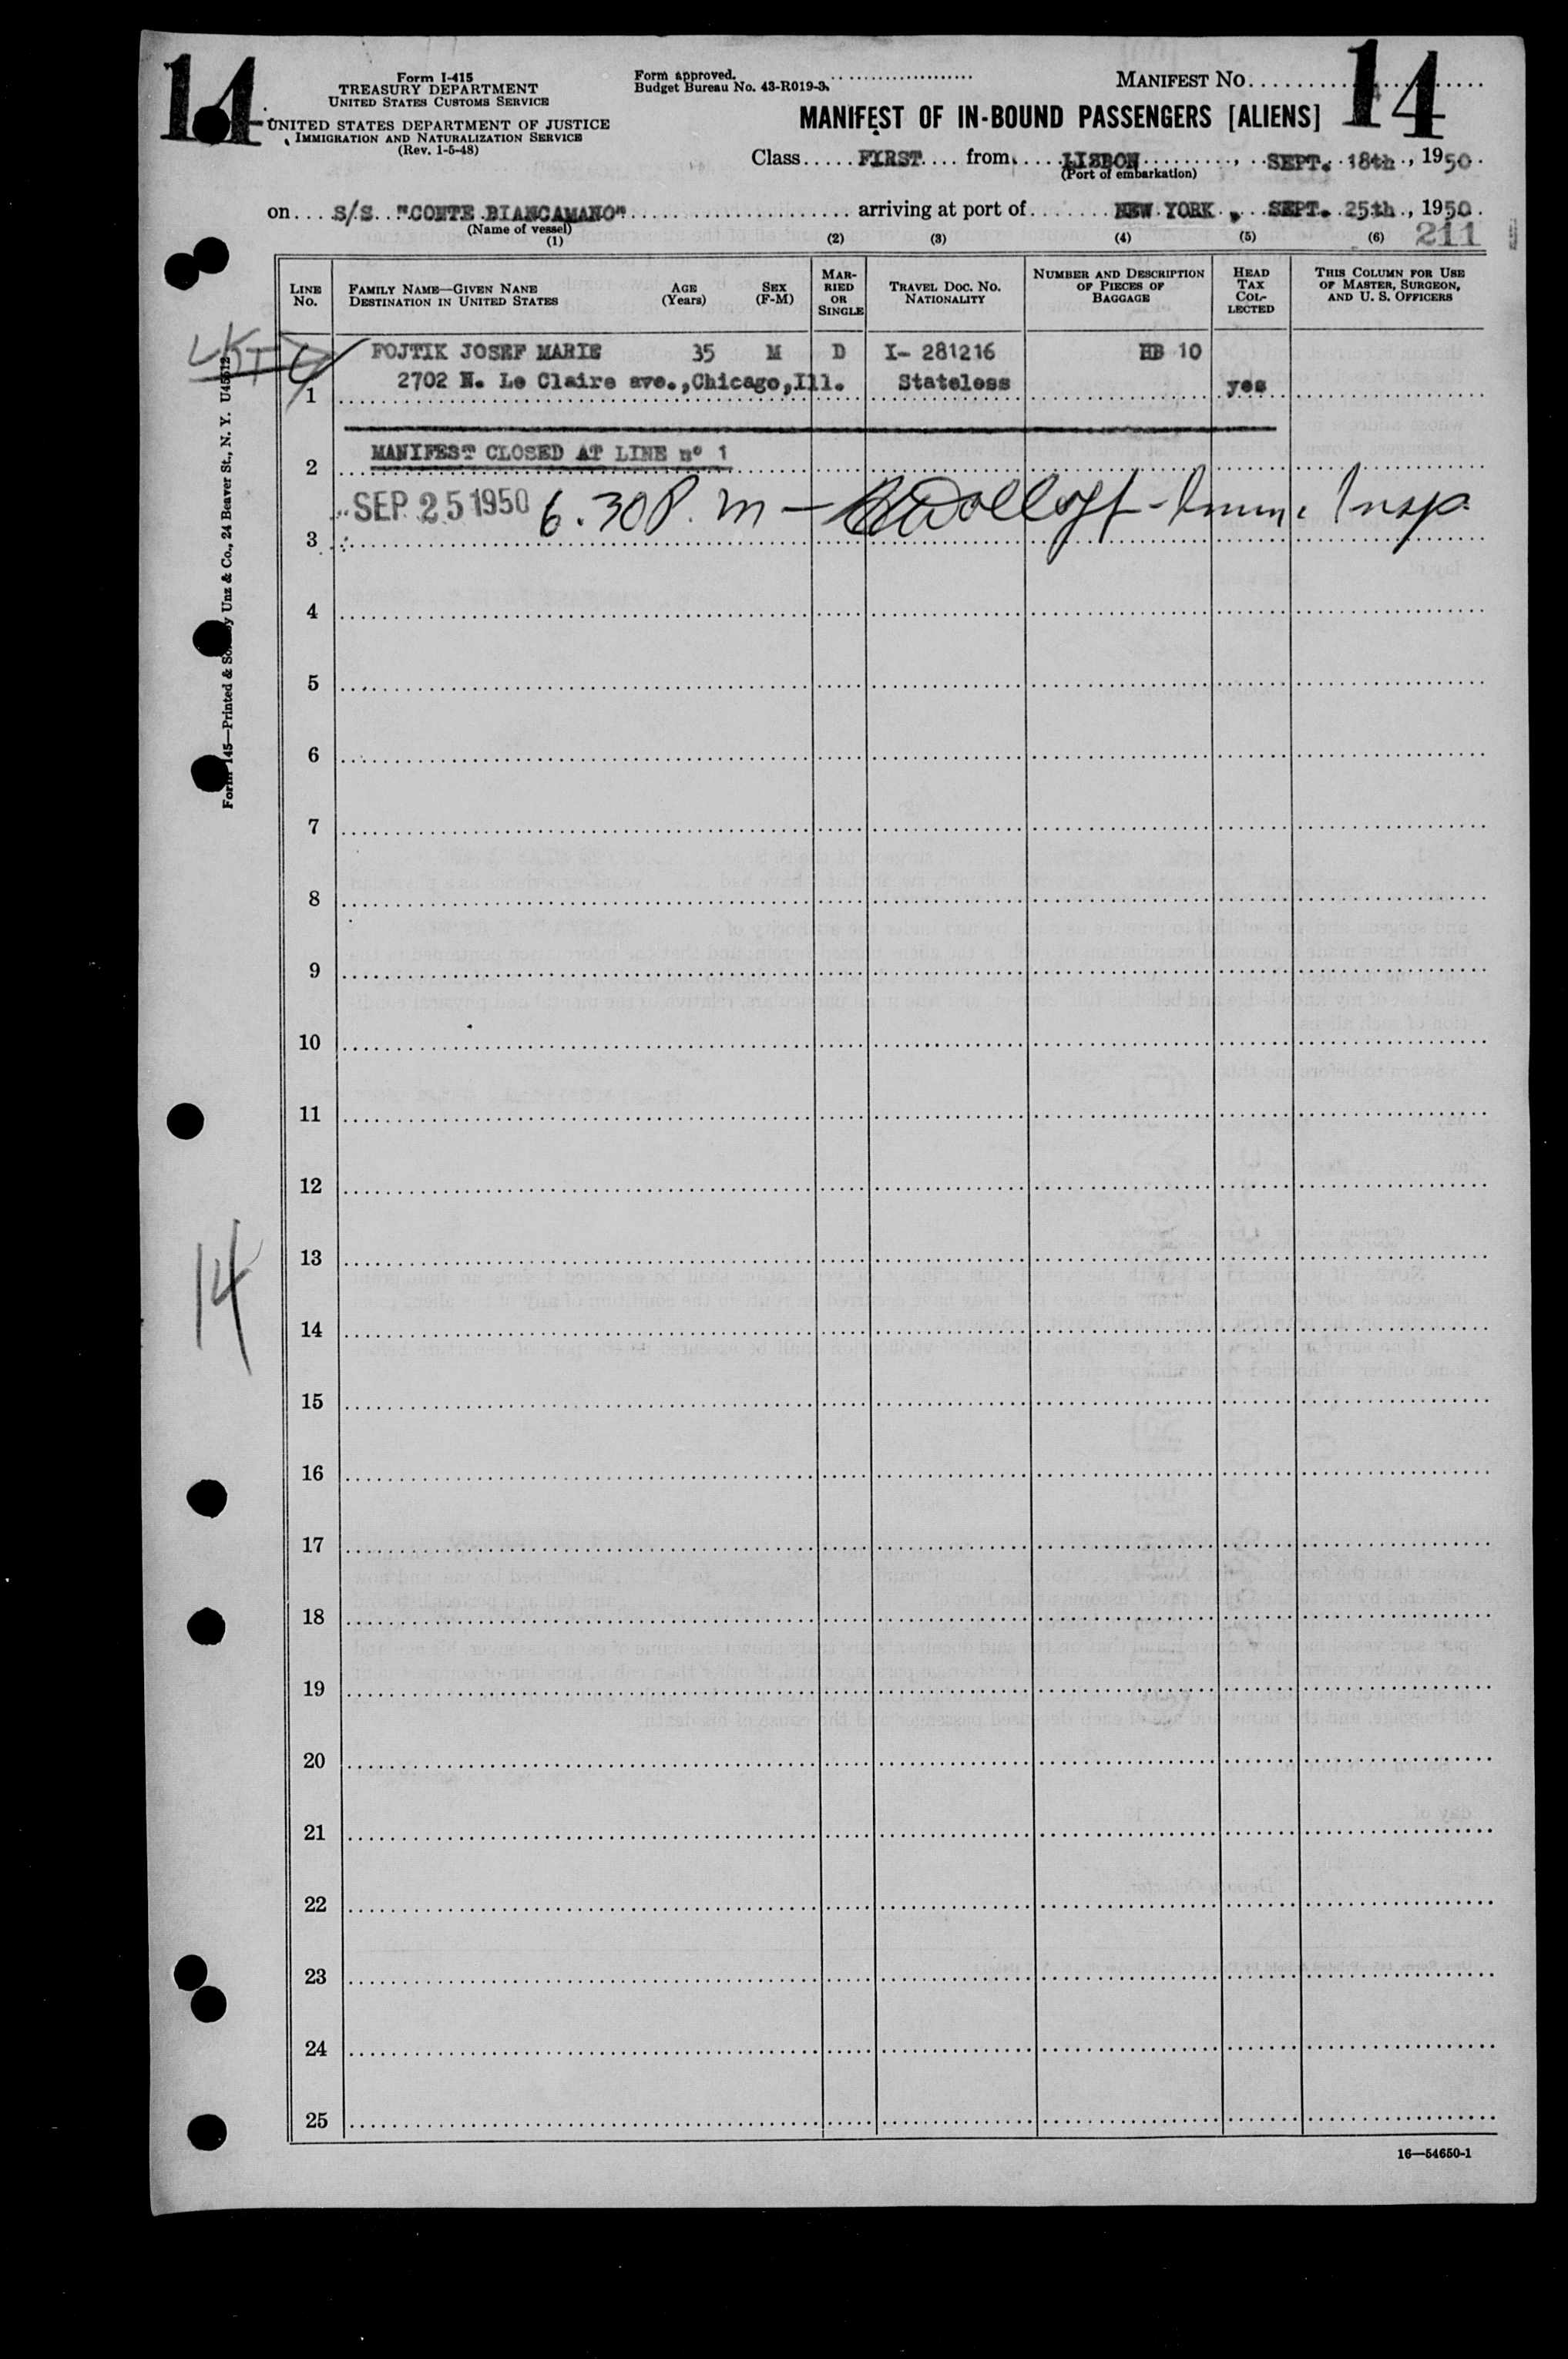 14
Form I-415
TREASURY DEPARTMENT
UNITED STATES CUSTOMS SERVICE
UNITED STATES DEPARTMENT OF JUSTICE
IMMIGRATION AND NATURALIZATION SERVICE
(Rev. 1-5-48)
Form approved.
Budget Bureau No. 43-R019-3.
MANIFEST NO. 14
MANIFEST OF IN-BOUND PASSENGERS [ALIENS]
Class FIRST from LISBON, SEPT. 18th, 1950.
(Port of embarkation)
on S/S "CONTE BIANCAMANO" arriving at port of NEW YORK, SEPT. 25th, 1950.
(Name of vessel)
211
(1) (2) (3) (4) (5) (6)
LINE NO. FAMILY NAME—GIVEN NANE DESTINATION IN UNITED STATES AGE (Years) SEX (F-M) MARRIED OR SINGLE TRAVEL DOC. NO. NATIONALITY NUMBER AND DESCRIPTION OF PIECES OF BAGGAGE HEAD TAX COLLECTED THIS COLUMN FOR USE OF MASTER, SURGEON, AND U. S. OFFICERS
FOJTIK JOSEF MARIE 35 M D I- 281216 HB 10
1 2702 N. Le Claire ave.,Chicago,Ill. Stateless yes
2 MANIFEST CLOSED AT LINE nº 1
3 SEP 25 1950 6.30 P.m — Imm. Insp.
4
5
6
7
8
9
10
11
12
13
14
15
16
17
18
19
20
21
22
23
24
25
14
16—54650-1